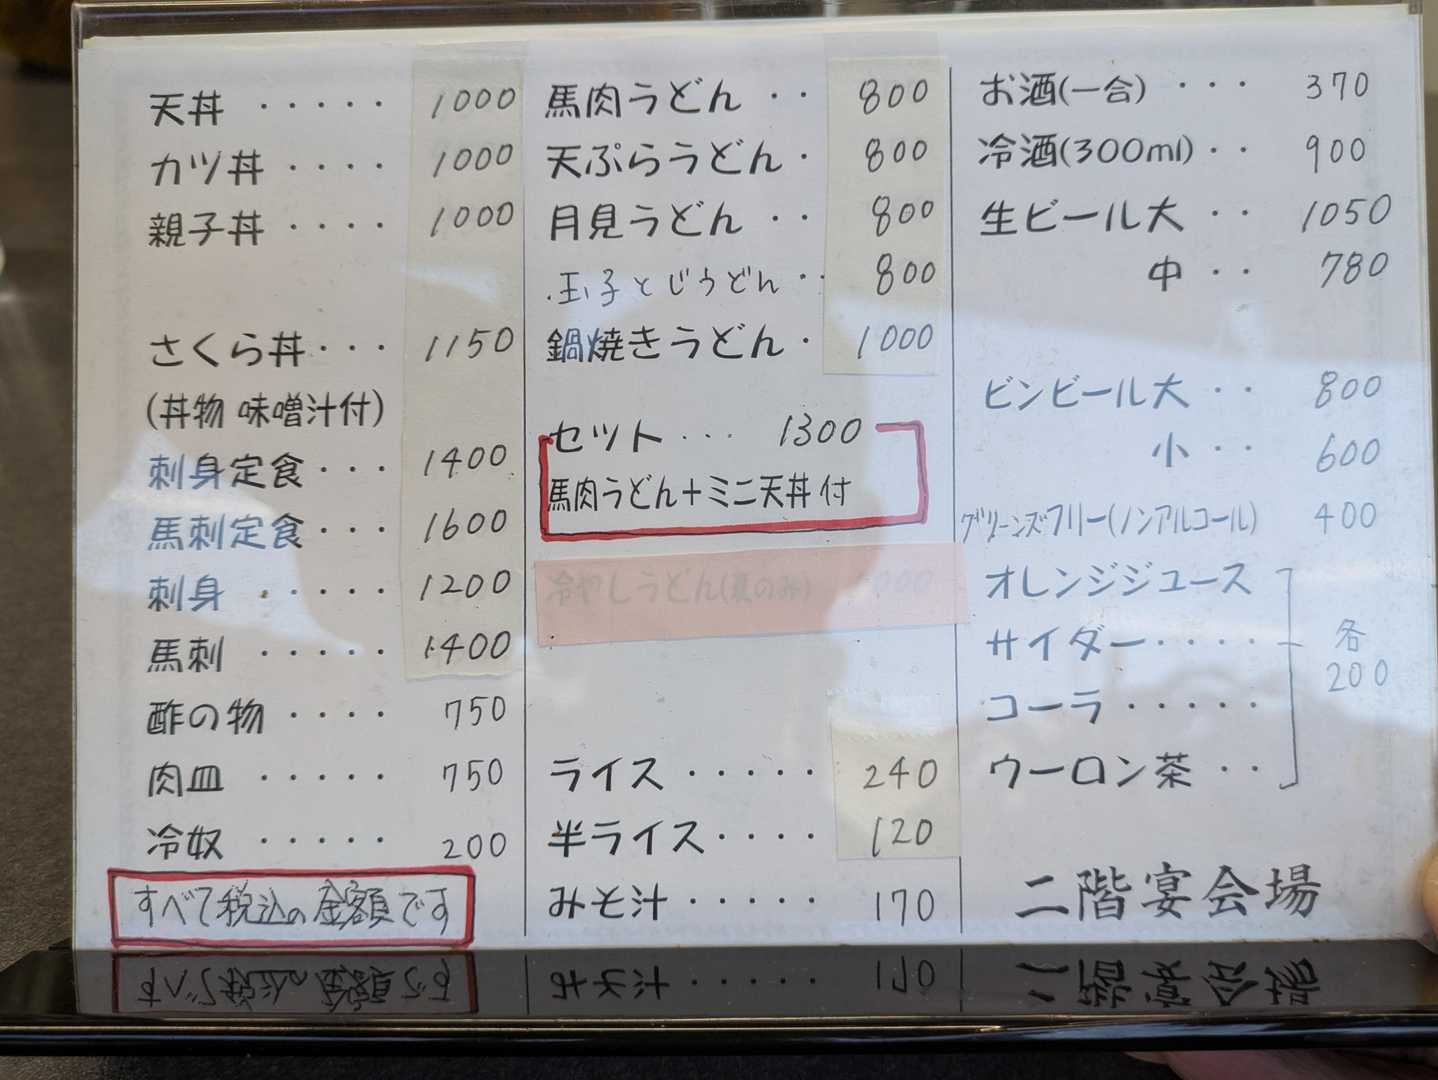 天丼 ・・・・・ 1000
カツ丼 ・・・・ 1000
親子丼 ・・・・ 1000
さくら丼・・・ 1150
(丼物 味噌汁付)
刺身定食・・・ 1400
馬刺定食・・・ 1600
刺身 ・・・・・ 1200
馬刺 ・・・・・ 1400
酢の物 ・・・・ 750
肉皿 ・・・・・ 750
冷奴 ・・・・・ 200
すべて税込の金額です
馬肉うどん ・・ 800
天ぷらうどん・ 800
月見うどん ・・ 800
玉子とじうどん ・・ 800
鍋焼きうどん・ 1000
セット・・・ 1300
馬肉うどん+ミニ天丼付
冷やしうどん(夏のみ)
ライス・・・・・ 240
半ライス・・・・ 120
みそ汁・・・・・ 170
お酒(一合) ・・・ 370
冷酒(300ml)・・ 900
生ビール大 ・・ 1050
中 ・・ 780
ビンビール大 ・・ 800
小 ・・ 600
グリーンズフリー(ノンアルコール) 400
オレンジジュース
サイダー・・・・
コーラ・・・・・
ウーロン茶 ・・
各
200
二階宴会場